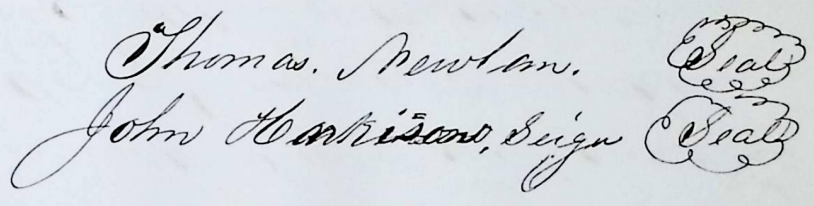 Thomas. Newlan. Seal
John Harkisons, Seign Seal